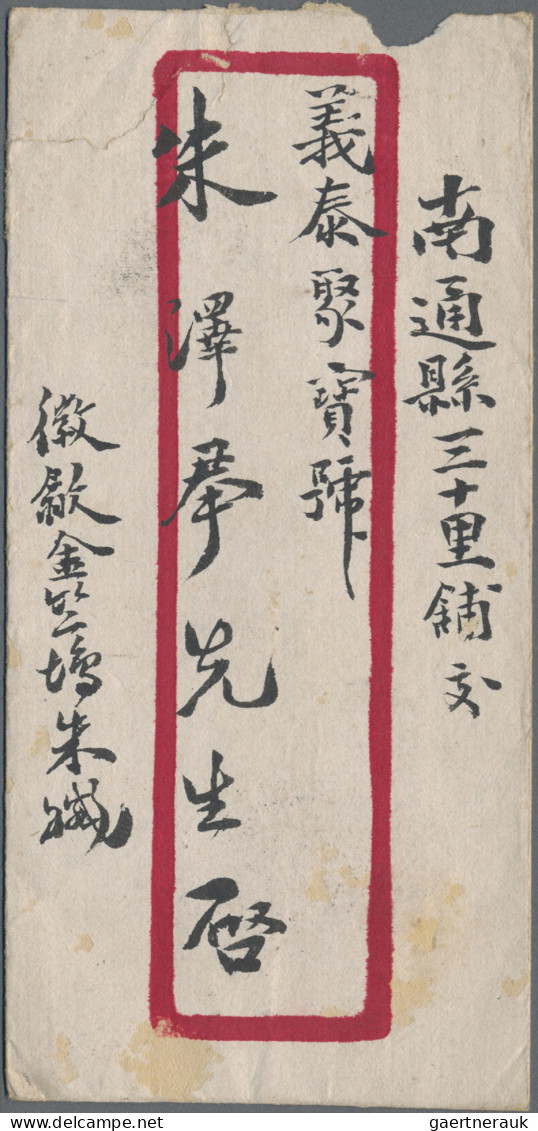 南通縣三十里鋪交
義泰聚寶號
朱澤奉先生啓
徽歙金竺塢朱緘
gaertnerauk